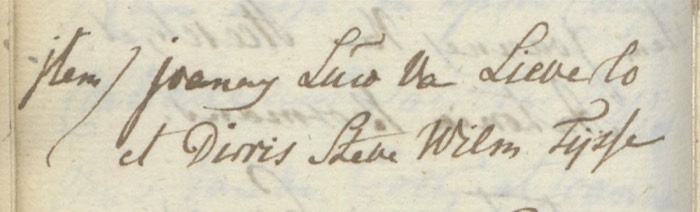 jtem) joanas Lŭco Va Lieverlo
et Dirris Steve Wilm Tijsse